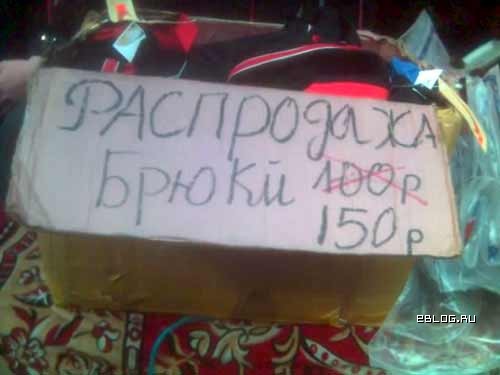 РАСПРОДАЖА
БРЮКИ 100р
150р
EBLOG.RU